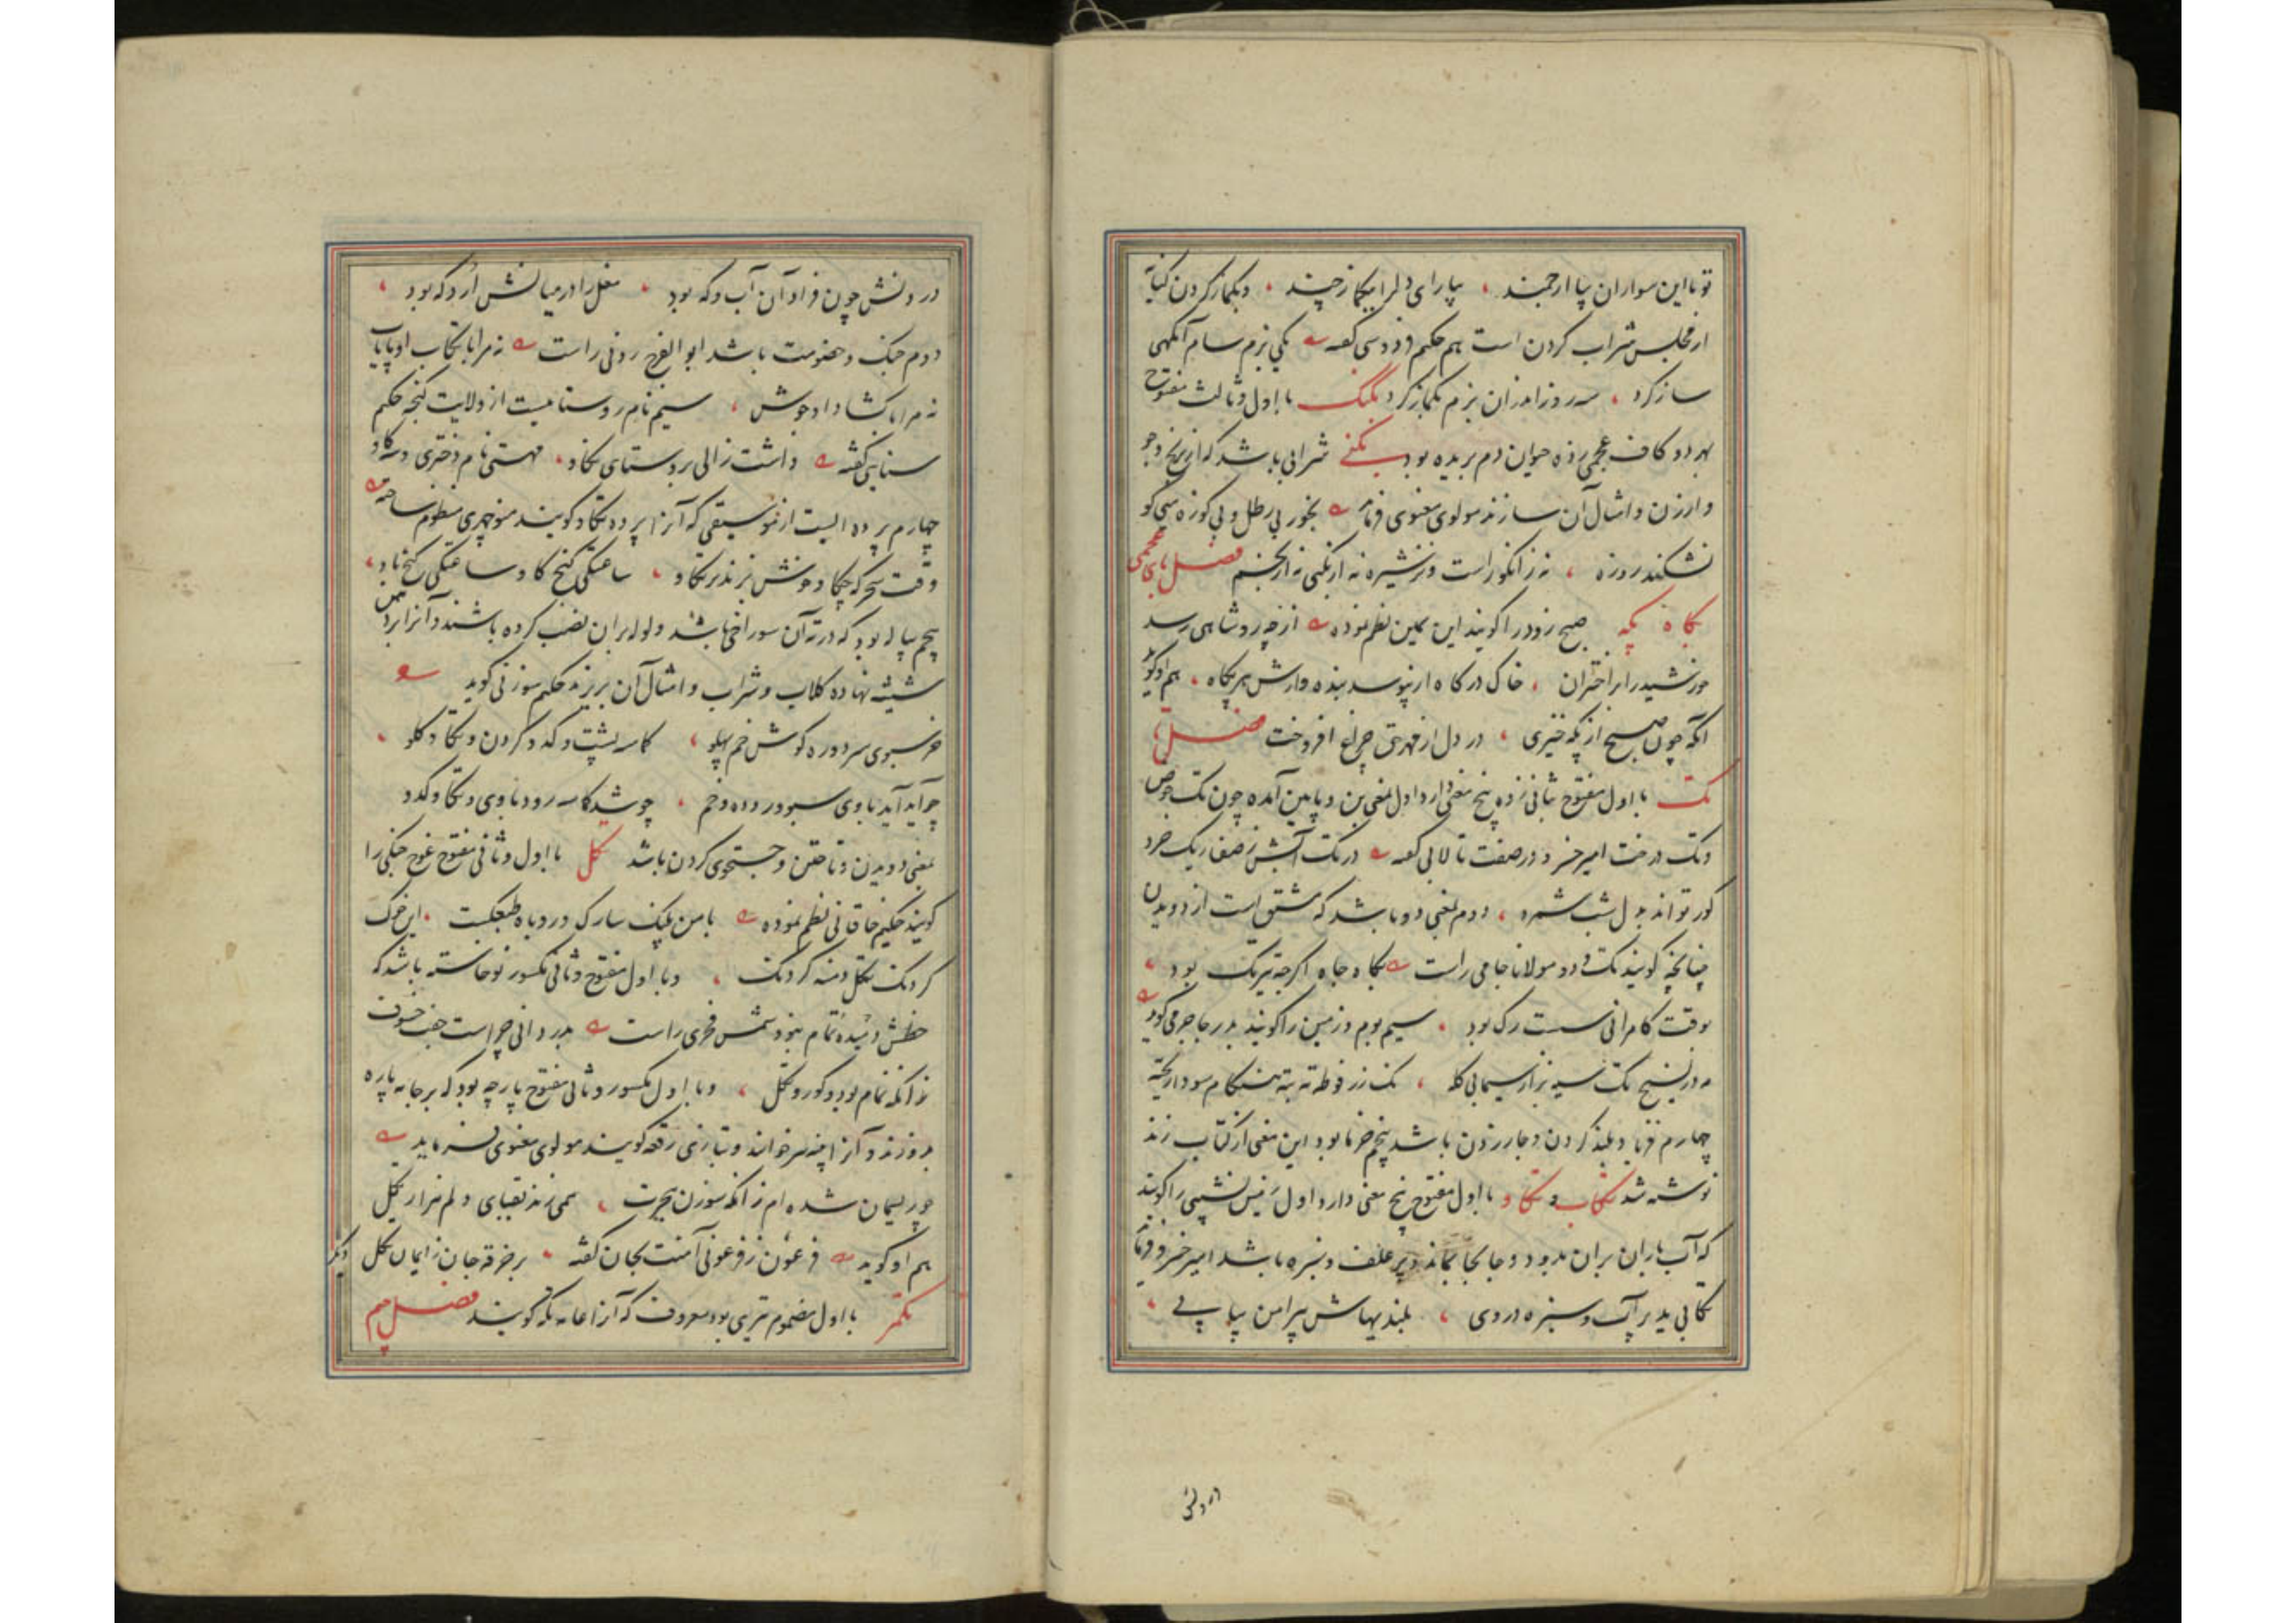 تو با این سواران بیا ارجمند ، بیارای دلرا بیکماز چند ، وبکماز کردن کنایة
از مجلس شراب کردن است هم حکیم فردوسی گفته یکی بزم سام آنگهی
ساز کرد ، سه روز اندران بزم بکماز کرد بگنگ با اول وثالث مفتوح
بهر دو کاف عجمی زده حیوان دم بریده بود بگنی شرابی باشد که از برنج وجو
وارزن وامثال آن سازند مولوی معنوی فرماید بخور بی رطل و بی کوزه می کو
نشکند روزه ، نه ز انگور است و نز شیره نه از بگنی نه از فصل بای عجمی
پگاه پگه صبح زود را گویند ابن یمین نظم نموده از چه رو شاهی رسد
خورشید را بر اختران ، خاک درگاه ار نبوسد بنده وارش هر پگاه ، هم او گوید
آنکه چون صبح از پگه خیزی ، در دل از مهرتی چراغ افروخت فصل تا
تک با اول مفتوح بثانی زده پنج معنی دارد اول بمعنی بن و پایین آمده چون تک حوض
وتک درخت امیر خسرو در صفت تالابی گفته در تک آبش ز صفا ریک خرد
کور تواند بدل شب شمرد ، دوم بمعنی دو باشد که مشتق است از دویدن
چنانچه گویند تک ودو مولانا جامی راست بگاه جاه اگر چه تیزتک بود ،
بوقت کامرانی سست رگ بود ، سیم بوم وزمین را گویند بدر جاجرمی گوید
چهارم فریاد بلند کردن وجار زدن باشد پنجم خرما بود این معنی از کتاب زند
نوشته شد تکاب و تکاو با اول مفتوح پنج معنی دارد اول زمین نشیبی را گویند
که آب باران بران بدود و جابجا بماند وپر علف و سبزه باشد امیر خسرو فرماید
تکابی بد پر آب و سبزه در وی ، بلندیهاش پیرامن پیاپی ،
در ولش
در ولش چون فراوان آب وکه بود ، مغل را در میانش اردکه بود ،
دوم جنگ وخصومت باشد ابو الفرج رونی راست نه مرا با تکاب او پایاب
نه مرا با گشاد او جوشن ، سیم نام روستاییست از ولایت گنجه حکیم
سنایی گفته داشت زالی بروستای تکاو ، مهستی نام دختری وسه گاو
چهارم پرده ایست از موسیقی که آنرا پرده تکاو گویند منوچهری منظوم ساخته
وقت سحرگه چکاو خوش بزند بر تکاو ، ساعتکی گنج گاو ساعتکی گنج باد ،
پنجم پیاله بود که در ته آن سوراخی باشد ولوله بران نصب کرده باشند وآنرا بر دهن
شیشه نهاده گلاب وشراب وامثال آن بریزند حکیم سوزنی گوید
خر سبوی سر دوره گوش خم پهلو ، کاسه پشت وکدو گردن وتکاو گلو ،
چو آید آید باوی سبو و دوره وخم ، چو شد کاسه رود باوی وتکاو وکدو
بمعنی دویدن وتاختن و جستجوی کردن باشد تکل با اول وثانی مفتوح غوچ جنگی را
گویند حکیم خاقانی نظم نموده با من پلنگ سارک و روباه طبعکست ، این خوک
گردنک تکل دمنه گردنک ، وبا اول مفتوح وثانی مکسور نو خاسته باشد که
خطش دمیده تمام نبود شمس فخری راست بدر دانی چراست جفت خسوف
زانکه تمام بود و کور و تکل ، وبا اول مکسور وثانی مفتوح پارچه بود که بر جامه پاره
بدوزند وآنرا پینه خوانند وبتازی رقعه گویند مولوی معنوی فرماید
چو ریسمان شده ام زانکه سوزن هجرت ، همی زند بقبای دلم هزار تکل
هم او گوید فرعون ز فرعونی آمنت بجان گفته ، بر خرقه جان ز ایمان تکل دیگر
تکمر با اول مضموم تیری بود معروف که آنرا عامه تکه گویند فصل جیم